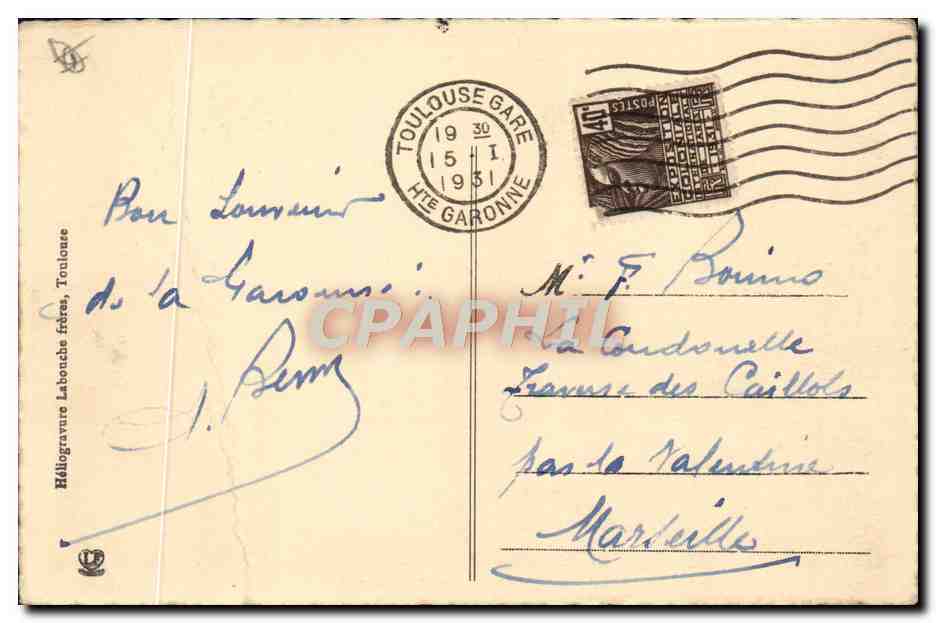 TOULOUSE GARE
19 30
15 - I
1931
HTE GARONNE
POSTES
40c
Bon Souvenir
de la Garonne
Mr F.
La Condouelle
Traverse des Caillols
par la Valentine
Marseille
CPAPHIL
Héliogravure Labouche frères, Toulouse
LF